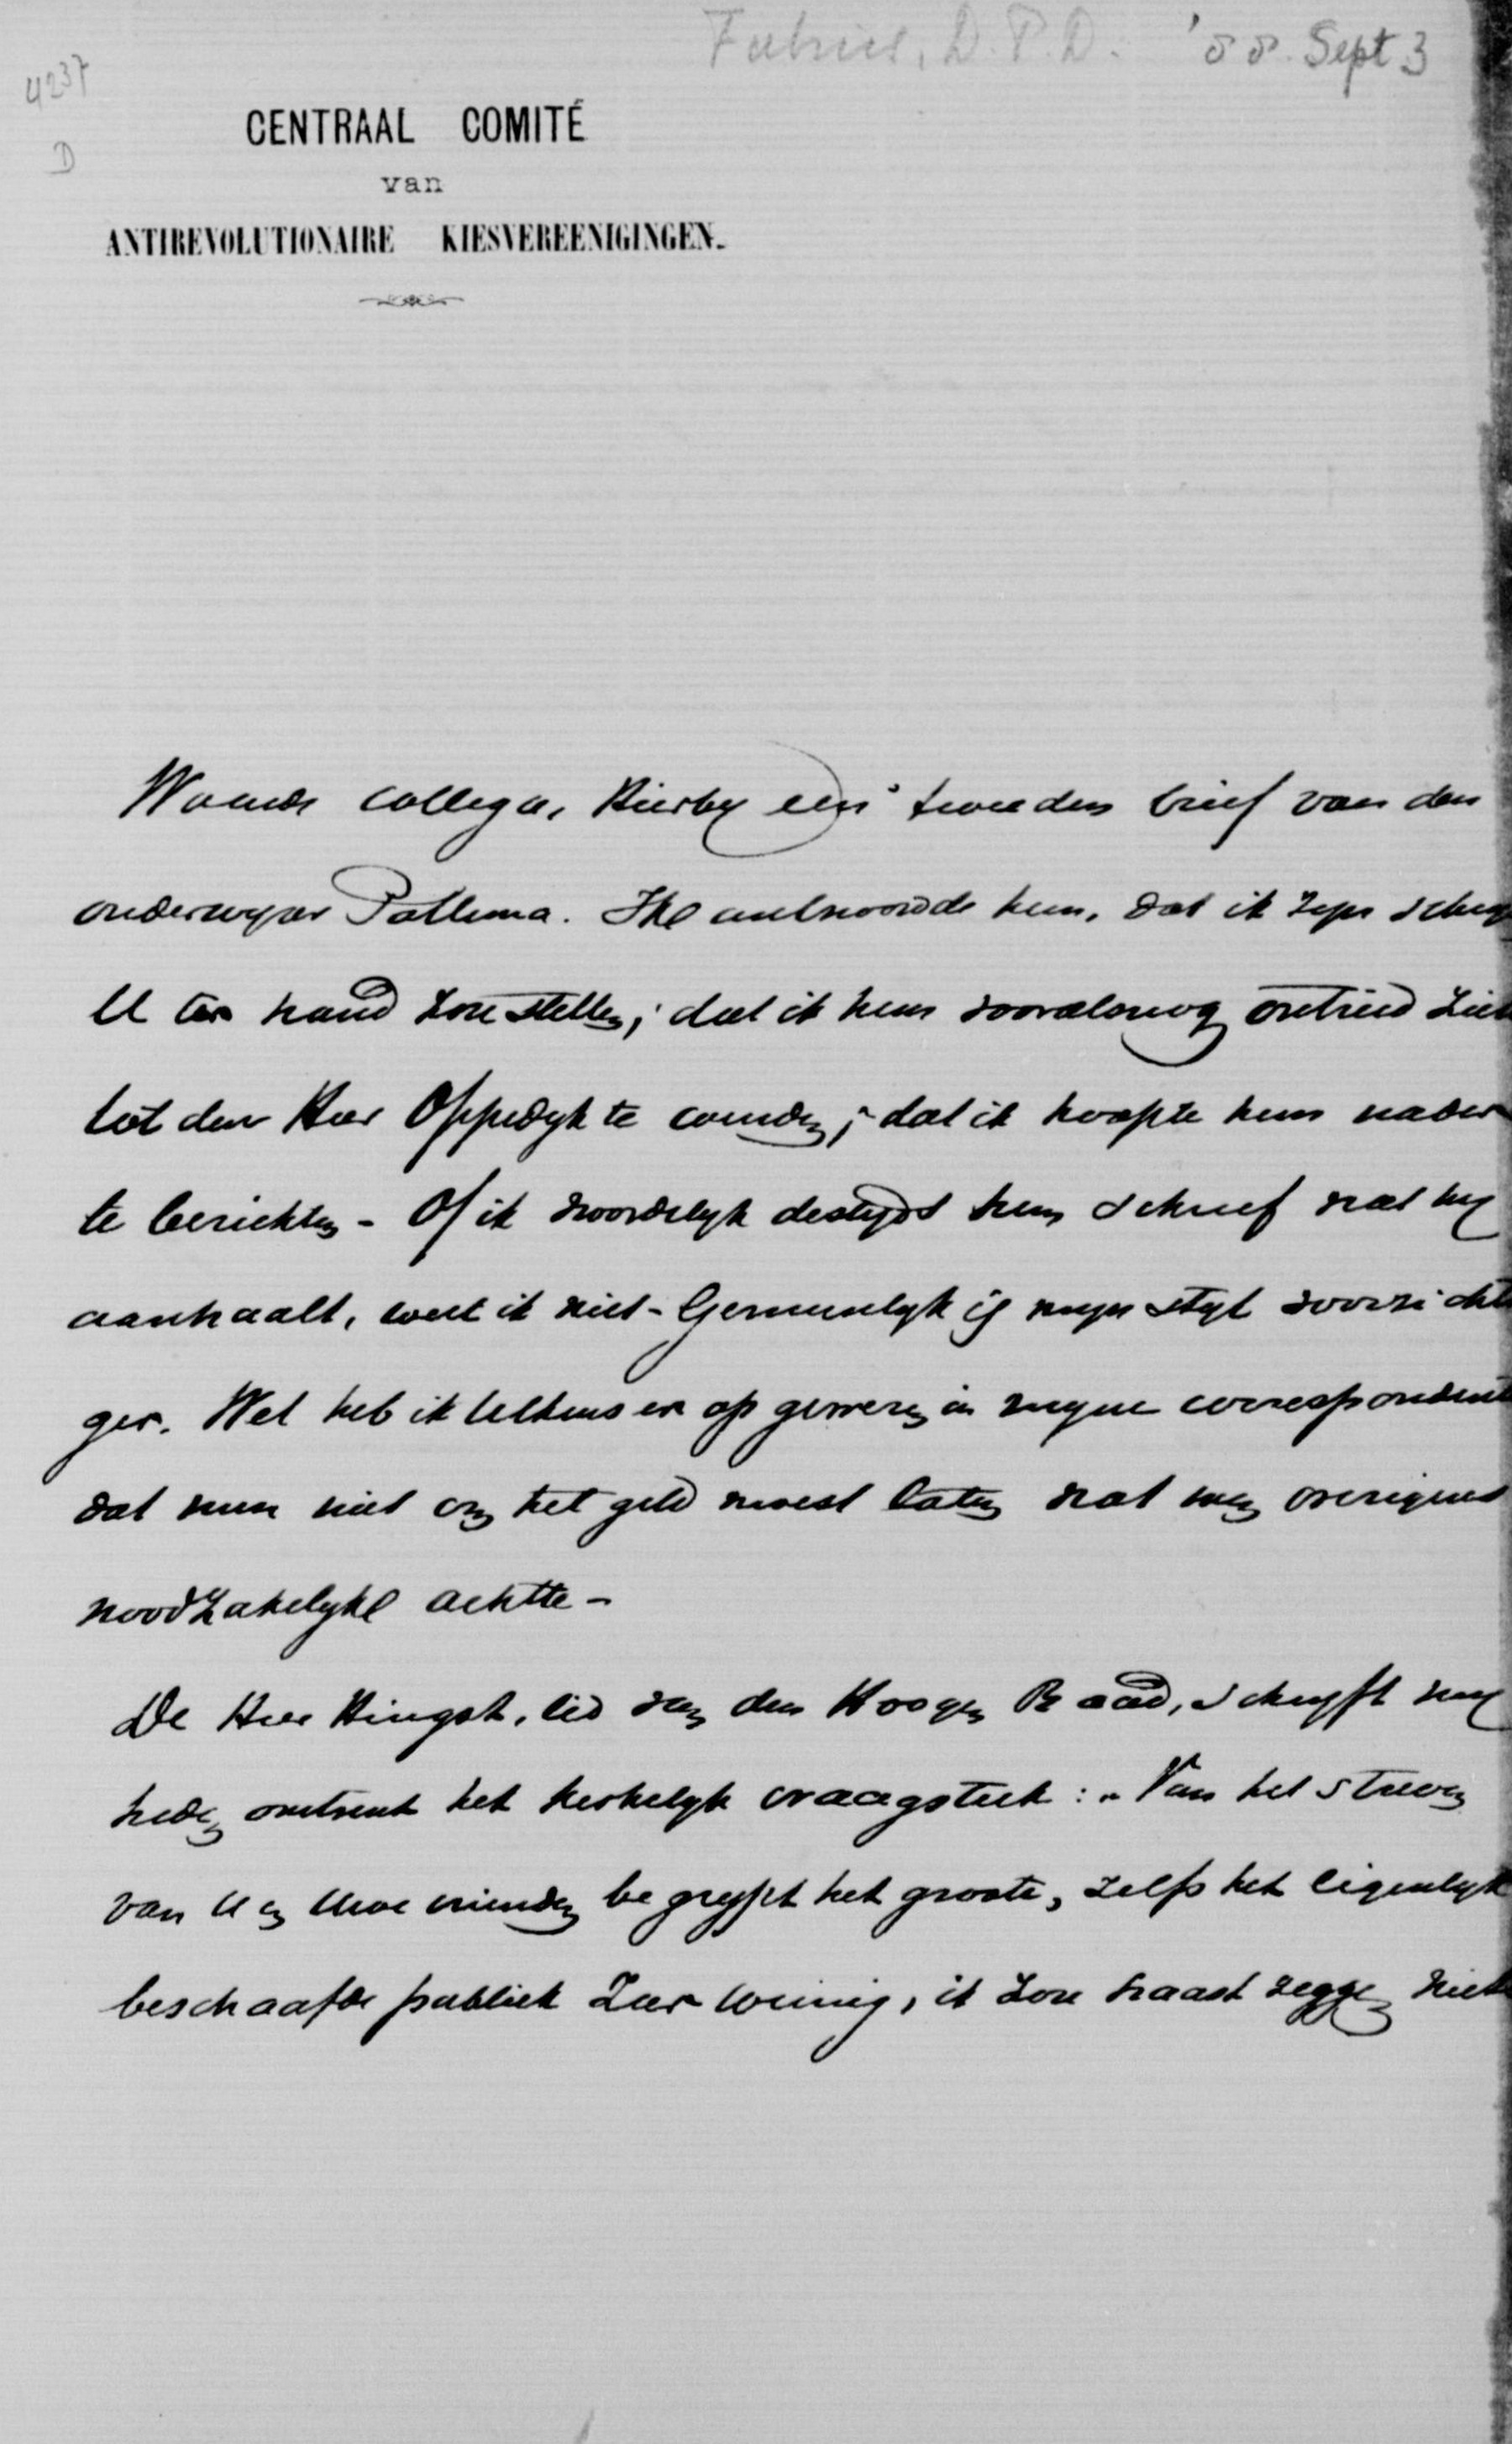 Fabius, D. P. D. '88. Sept 3
4237
D
CENTRAAL COMITÉ
van
ANTIREVOLUTIONAIRE KIESVEREENIGINGEN.
Waarde collega, Hierby een tweeden brief van den
onderwyzer Pollema. Ik antwoordde hem, dat ik zyn schryven
U ter hand zou stellen; dat ik hem vooralsnog ontried zich
tot den Heer Oppedyk te wenden; dat ik hoopte hem nader
te berichten - Of ik woordelyk destyds hem schreef wat hy
aanhaalt, weet ik niet - Gemeenlyk is myn styl voorzichti
ger. Wel heb ik telkens er op gewezen in myne correspondentie
dat men niet om het geld moest laten wat men overigens
noodzakelyk achtte -
De Heer Kingst, lid van den Hoogen Raad, schryft my
heden omtrent het kerkelyk vraagstuk: "Van het streven
van U en Uwe vrienden begrypt het groote, zelfs het eigenlyk
beschaafde publiek zeer weinig, ik zou haast zeggen niets